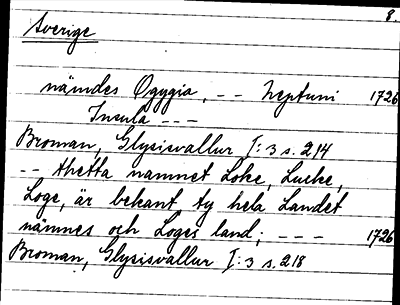 8.
Sverige
nämdes Ogygia, -- Neptuni 1726
Insula ---
Broman, Glysisvallur I: 3 s. 214
-- thetta namnet Loke, Lucke,
Loge, är bekant ty hela Landet
nämnes och Loges land; --- 1726
Broman, Glysisvallur I: 3 s. 218